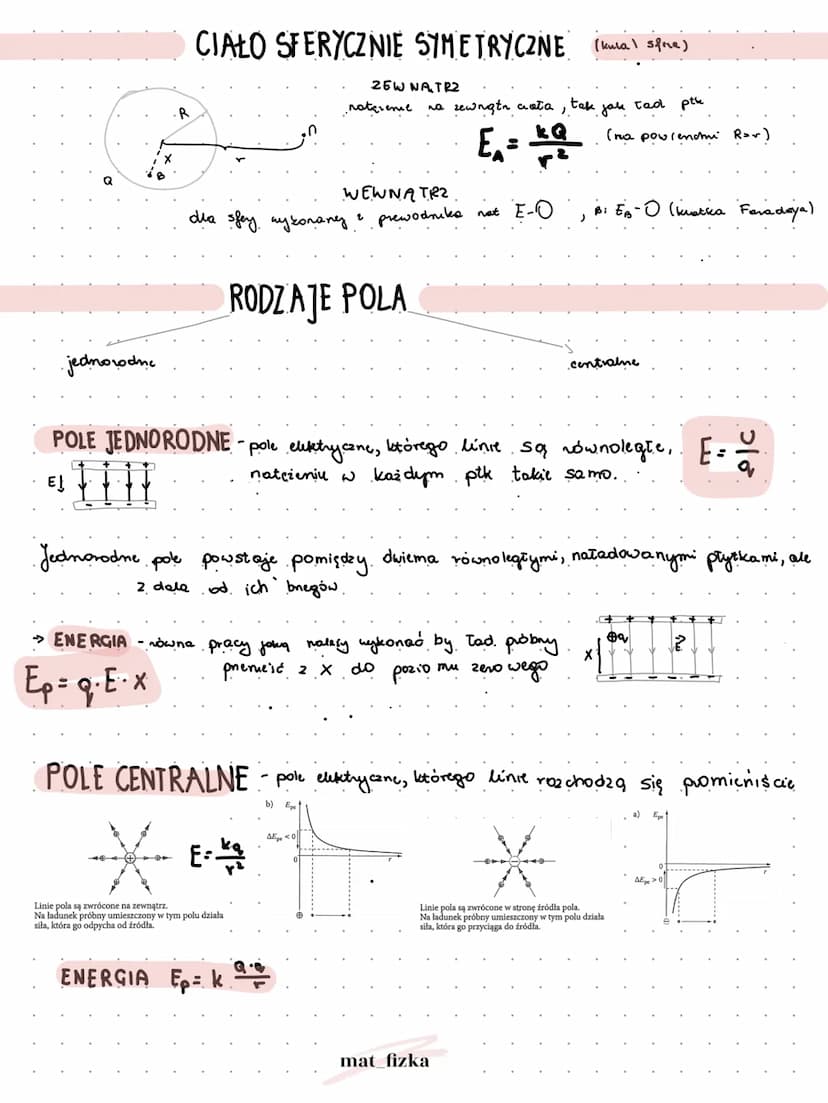 CIAŁO SFERYCZNIE SYMETRYCZNE (kula \ sfera)
ZEWNĄTRZ
natężenie na zewnątrz ciała, tak jak ład ptk
R
n
E_A = kQ/r² (na powierzchni R=r)
x
r
B
Q
WEWNĄTRZ
dla sfery wykonanej z przewodnika nat E-0, B: E_B-0 (klatka Faradaya)
RODZAJE POLA
jednorodne
centralne
POLE JEDNORODNE - pole elektryczne, którego linie są równoległe,
natężeniu w każdym ptk takie samo.
E = U/q
E↓
+ + + +
- - - -
Jednorodne pole powstaje pomiędzy dwiema równoległymi, naładowanymi płytkami, ale
z dala od ich brzegów
→ ENERGIA - równa pracy jaką należy wykonać by ład. próbny
przenieść z x do poziomu zerowego
Ep = q·E·x
+ + + + + +
⊕q
E
x
- - - - - -
POLE CENTRALNE - pole elektryczne, którego linie rozchodzą się promieniście
E = kq/r²
b) Epe
ΔEpe < 0
0
r
⊕
Linie pola są zwrócone na zewnątrz.
Na ładunek próbny umieszczony w tym polu działa
siła, która go odpycha od źródła.
a) Epe
0
r
ΔEpe > 0
⊖
Linie pola są zwrócone w stronę źródła pola.
Na ładunek próbny umieszczony w tym polu działa
siła, która go przyciąga do źródła.
ENERGIA Ep = k Q·q/r
mat_fizka